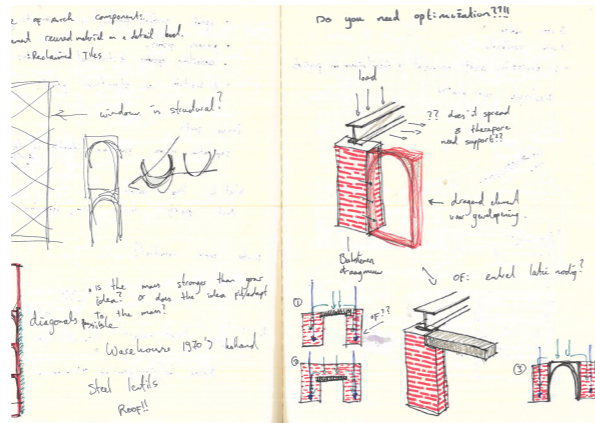 of Arch components
reused material on a detail level.
Reclaimed Tiles
window is structural?
is the mass stronger than your
idea? or does the idea fit/adapt
to the mass?
diagonals
possible
Warehouse 1970's
Steel
ROOF!!
Do you need optimization?!!!
load
?? does it spread
& therefore
need support??
dragend element
voor gevelopening.
Bakstenen
draagmuur
OF: enkel latei nodig?
①
OF??
②
③